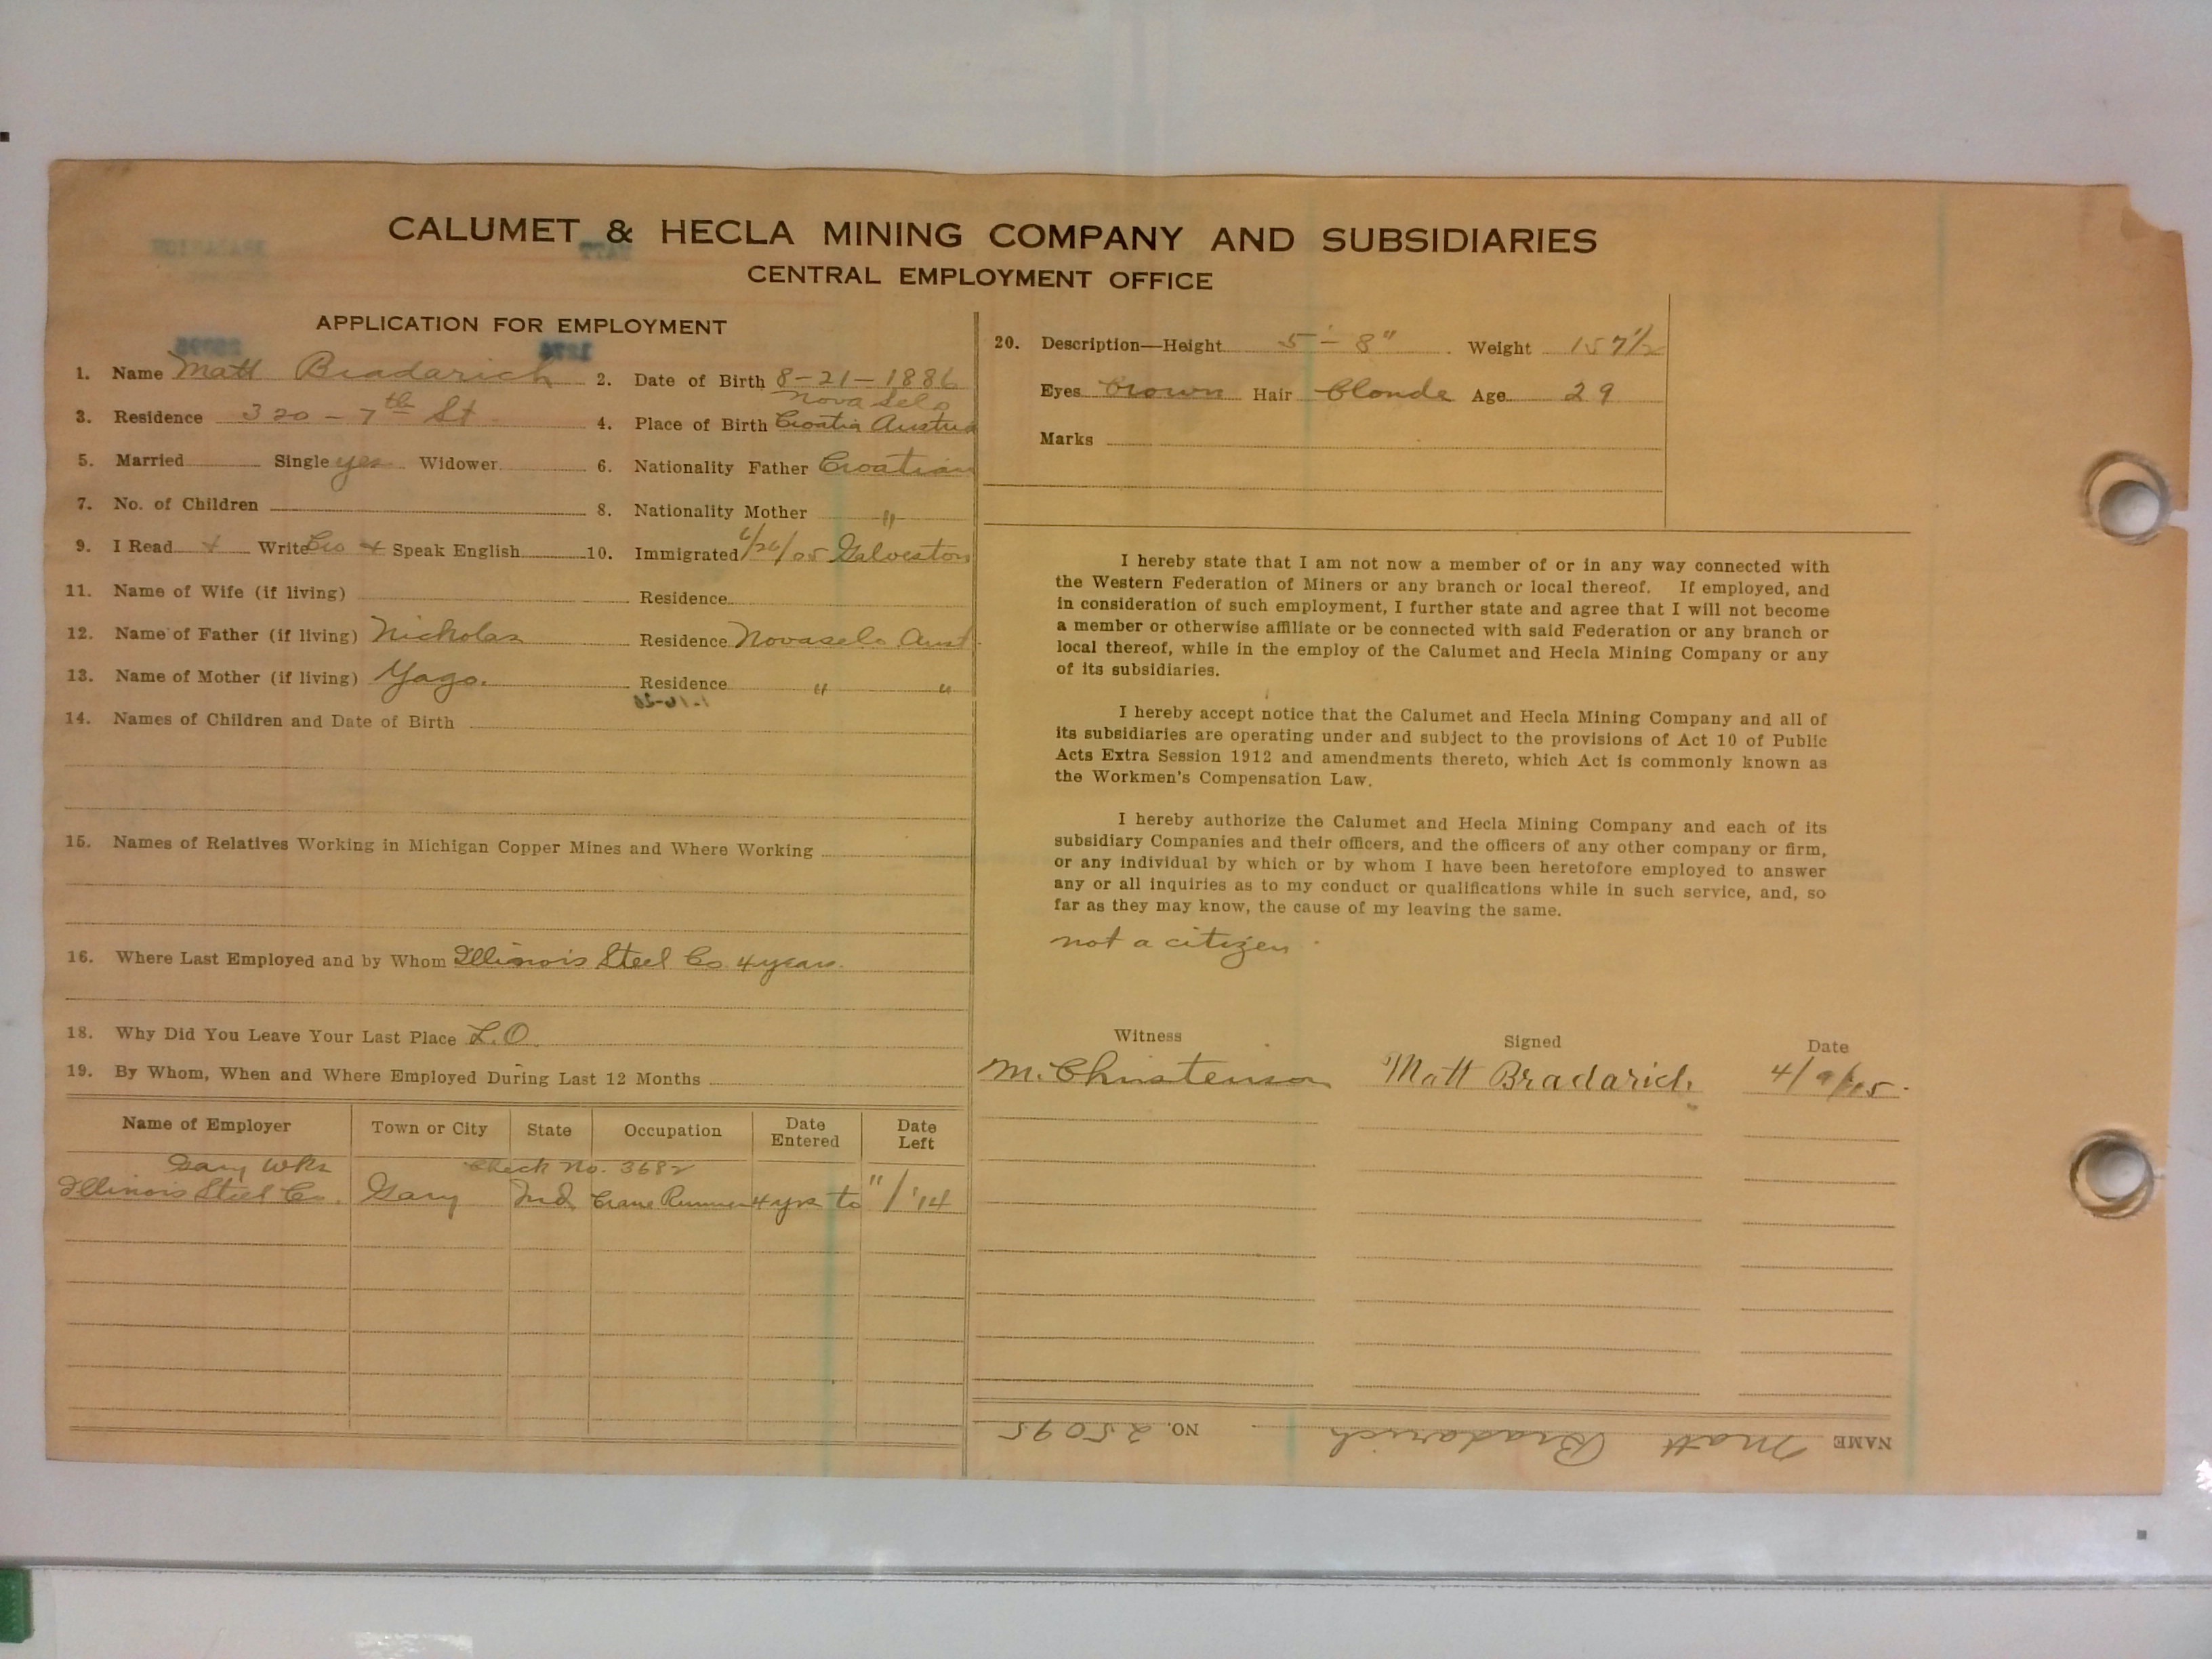 CALUMET & HECLA MINING COMPANY AND SUBSIDIARIES
CENTRAL EMPLOYMENT OFFICE
APPLICATION FOR EMPLOYMENT
1. Name Matt Bradarich 2. Date of Birth 8-21-1886
Novaselo
3. Residence 320 - 7th St 4. Place of Birth Croatia Austria
5. Married Single yes Widower 6. Nationality Father Croatian
7. No. of Children 8. Nationality Mother "
9. I Read + Write Cro + Speak English 10. Immigrated 6/26/05 Galveston
11. Name of Wife (if living) Residence
12. Name of Father (if living) Nicholas Residence Novaselo Aust
13. Name of Mother (if living) Yago. Residence " "
14. Names of Children and Date of Birth
15. Names of Relatives Working in Michigan Copper Mines and Where Working
16. Where Last Employed and by Whom Illinois Steel Co 4 years.
18. Why Did You Leave Your Last Place L.O.
19. By Whom, When and Where Employed During Last 12 Months
Name of Employer Town or City State Occupation Date Entered Date Left
Gary Wks Check No. 3682
Illinois Steel Co. Gary Ind Crane Runner 4 yrs to 11/'14
20. Description—Height 5'-8" Weight 157 1/2
Eyes brown Hair blonde Age 29
Marks
I hereby state that I am not now a member of or in any way connected with
the Western Federation of Miners or any branch or local thereof. If employed, and
in consideration of such employment, I further state and agree that I will not become
a member or otherwise affiliate or be connected with said Federation or any branch or
local thereof, while in the employ of the Calumet and Hecla Mining Company or any
of its subsidiaries.
I hereby accept notice that the Calumet and Hecla Mining Company and all of
its subsidiaries are operating under and subject to the provisions of Act 10 of Public
Acts Extra Session 1912 and amendments thereto, which Act is commonly known as
the Workmen's Compensation Law.
I hereby authorize the Calumet and Hecla Mining Company and each of its
subsidiary Companies and their officers, and the officers of any other company or firm,
or any individual by which or by whom I have been heretofore employed to answer
any or all inquiries as to my conduct or qualifications while in such service, and, so
far as they may know, the cause of my leaving the same.
not a citizen
Witness Signed Date
M. Christenson Matt Bradarich 4/9/15
NAME Matt Bradarich NO. 25095